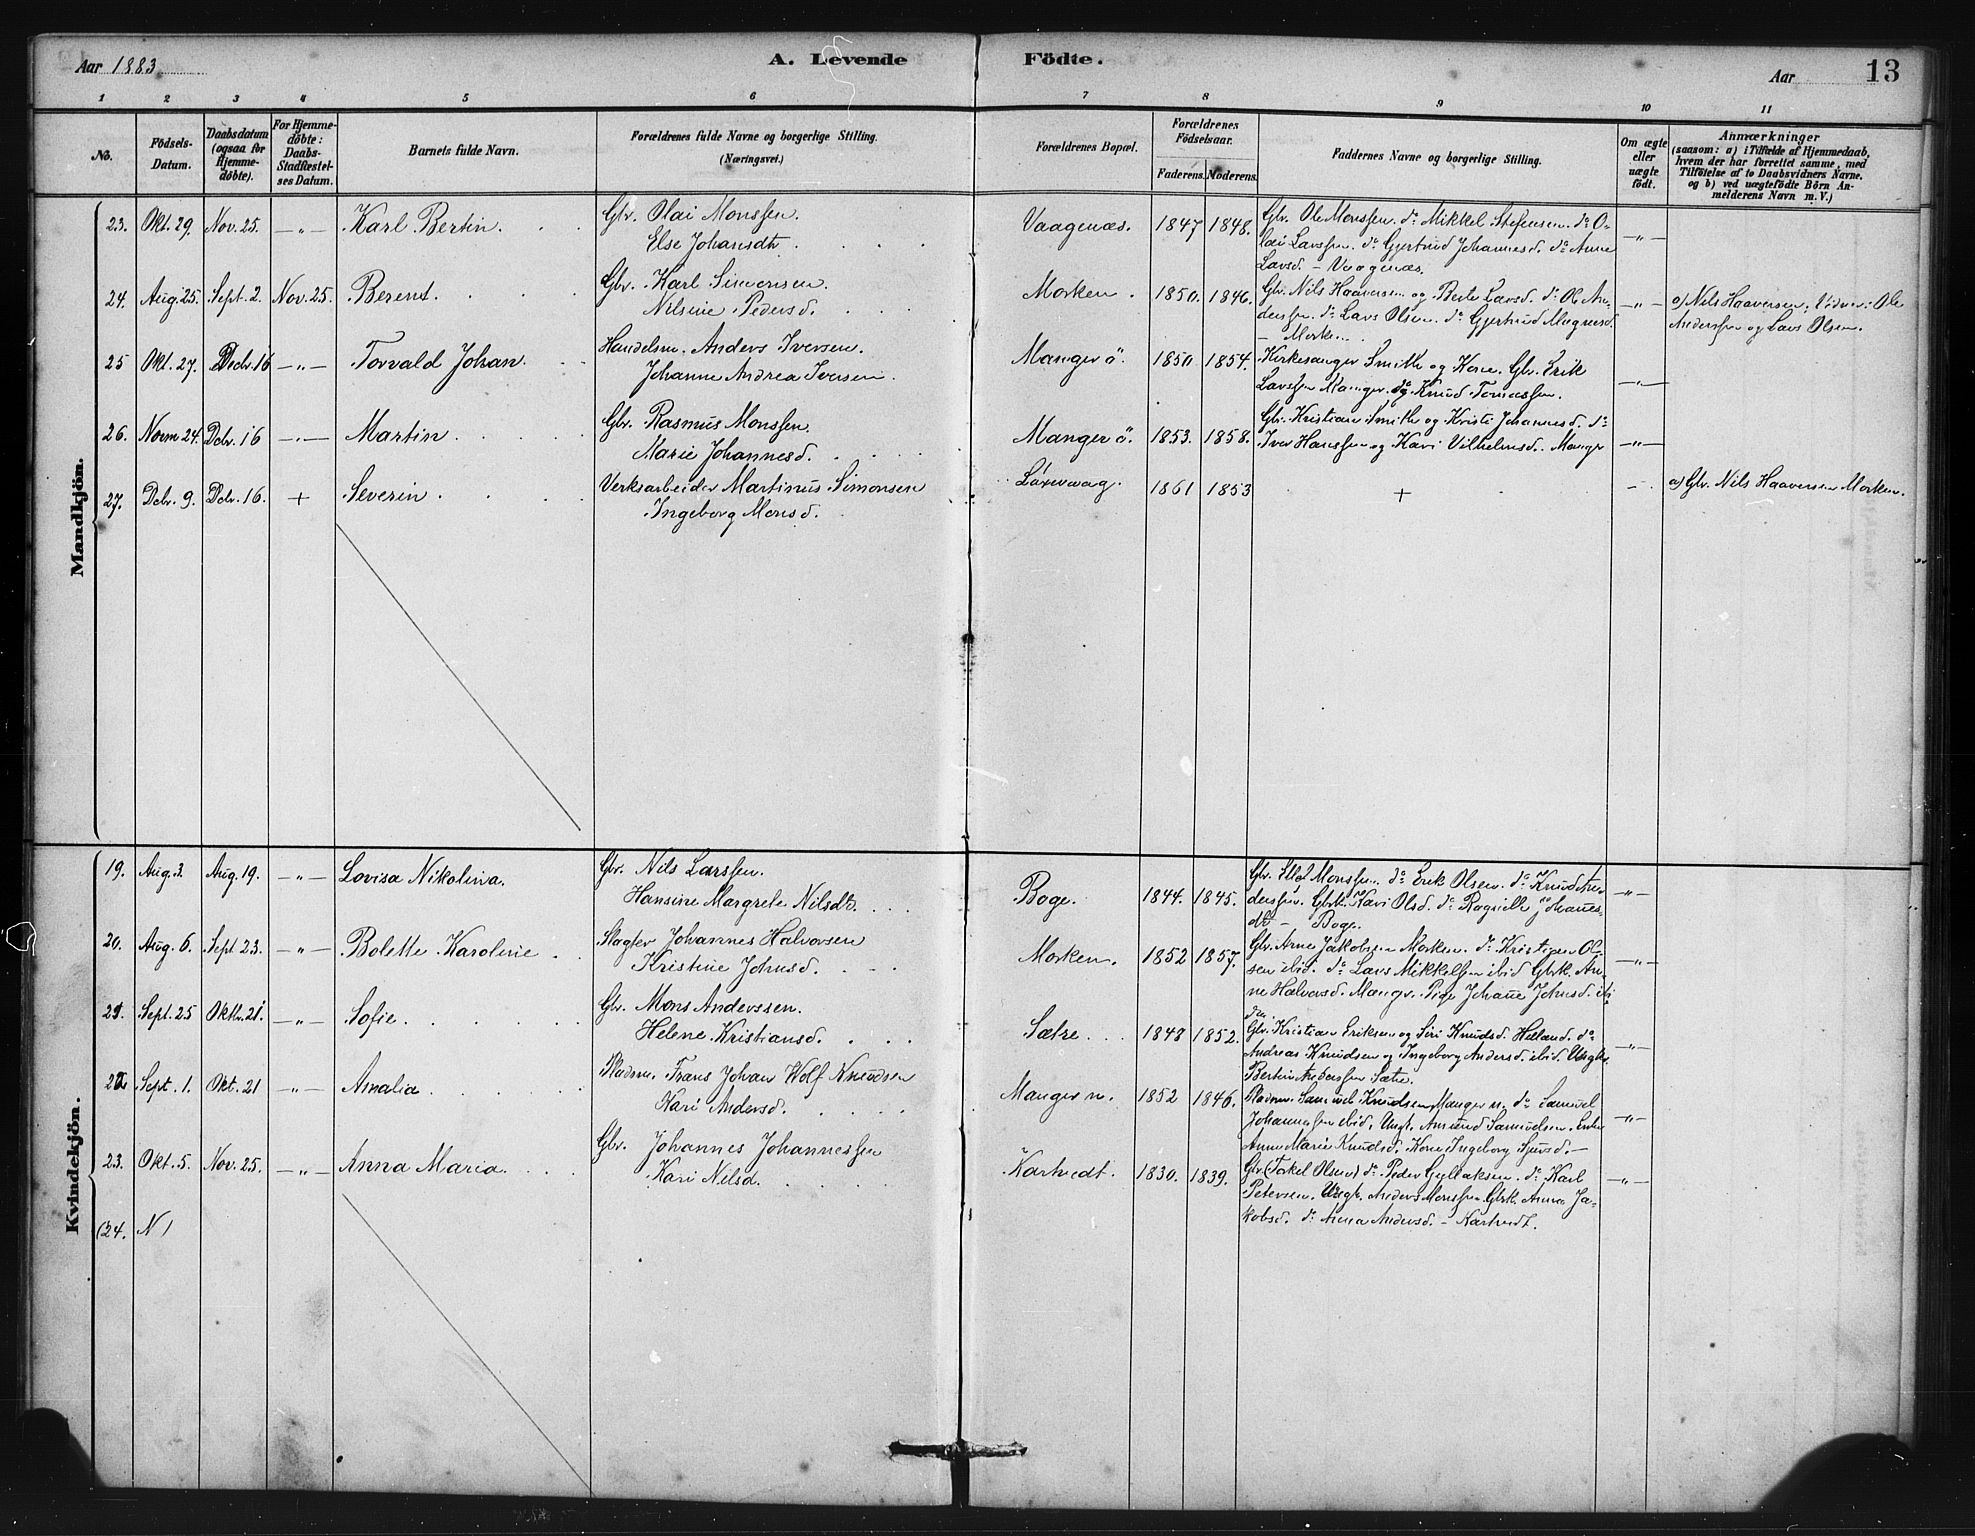 Aar 1883
A. Levende Födte.
Aar
13
1 2 3 4 5 6 7 8 9 10 11
No.
Födsels-
Datum.
Daabsdatum
(ogsaa for
Hjemme-
döbte).
For Hjemme-
döbte:
Daabs-
Stadfæstel-
ses Datum.
Barnets fulde Navn.
Forældrenes fulde Navne og borgerlige Stilling.
(Næringsvei.)
Forældrenes Bopæl.
Forældrenes
Födselsaar.
Faderens. Moderens.
Faddernes Navne og borgerlige Stilling.
Om ægte
eller
uægte
födt.
Anmærkninger
(saasom: a) i Tilfælde af Hjemmedaab,
hvem der har forrettet samme, med
Tilföielse af to Daabsvidners Navne.
og b) ved uægtefödte Börn An-
melderens Navn m. V.)
Mandkjön.
23. Okt. 29. Nov. 25. —„— Karl Bertin.
Gbr. Olai Monssen.
Else Johansdtr.
Vaagenæs. 1847 1848.
Gbr. Ole Monssen. do Mikkel Stefensen. do O-
lai Larssen. do Gjertrud Johannesd. do Anne
Larsd. – Vaagenæs.
—„—
24. Aug. 25. Sept. 2. Nov. 25. Berent.
Gbr. Karl Simensen.
Nilsine Pedersd.
Morken. 1850. 1846.
Gbr. Nils Haaversen og Berte Larsd. do Ole An-
derssen. do Lars Olsen. do Gjertrud Magnesd.
– Morken.
—„—
a) Nils Haaversen, Vidner: Ole
Anderssen og Lars Olsen.
25 Okt. 27. Decbr. 16 —„— Torvald Johan.
Handelsm. Anders Iversen.
Johanne Andrea Iversen.
Manger ö. 1850 1854.
Kirkesanger Smith og Kone. Gbr. Erik
Larssen Manger. do Knud Tomassen.
—„—
26. Novm 24. Dcbr. 16 —„— Martin.
Gbr. Rasmus Monssen.
Marie Johannesd.
Manger ö. 1853. 1858.
Gbr. Kristian Smith og Kristi Johannesd. do
Iver Hanssen og Kari Vilhelmsd. Manger
—„—
27. Dcbr. 9. Dcbr. 16. + Severin.
Verksarbeider Martinus Simonsen
Ingeborg Monsd.
1861 1853
+
a) Gbr. Nils Haaversen Morken.
Kvindekjön.
19. Aug. 3. Aug. 19. —„— Lovisa Nikolina.
Gbr. Nils Larssen.
Hansine Margrete Nilsdtr.
Boge. 1844. 1845.
Monssen. do Erik Olsen. do Knud An-
derssen. Gbrk. Kari Olsd. do Johannes-
dtr – Boge.
—„—
20. Aug. 6. Sept 23. —„— Bolette Karoline.
Slagter Johannes Halvorsen
Kristine Johnsd.
Morken. 1852 1857.
Gbr. Arne Jakobsen Morken. do Kristian Ol-
sen ibid. do Lars Mikkelsen ibid Gbrk. An-
ne Halvorsd. Mangr. Pige Johanne Johnsd. ibi-
dm
—„—
21. Sept. 25 Oktbr. 21. —„— Sofie.
Gbr. Mons Anderssen.
Helene Kristiansd.
Sætre. 1848 1852.
Gbr. Kristian Eriksen og Siri Knudsd. Helland. do
Andreas Knudsen og Ingeborg Andersd. ibid. Ungkr.
Bertin Anderssen Sætre.
—„—
22 Sept. 1. Okt. 21 —„— Amalia.
Pladsm. Frans Johan Wolf Knudsen
Kari Andersd.
Manger n. 1852 1846.
Pladsm. Samuel Knudsen Manger n. do Samuel
Johannessen ibid. Ungk. Amund Samuelsen. Enke
Anne Marie Knudsd. Kone Ingeborg Sjursd. –
—„—
23. Okt. 5. Nov. 25. —„— Anna Maria.
Gbr. Johannes Johannessen
Kari Nilsd.
Kartvedt. 1830. 1839.
Gbr. (Torkel Olsen) do Peder Gullaksen. do Karl
Petersen. Ungk. Anders Monssen. Gbrk. Anna Ja-
kobsd. do Anna Andersd. – Kartvedt.
—„—
(24. N)